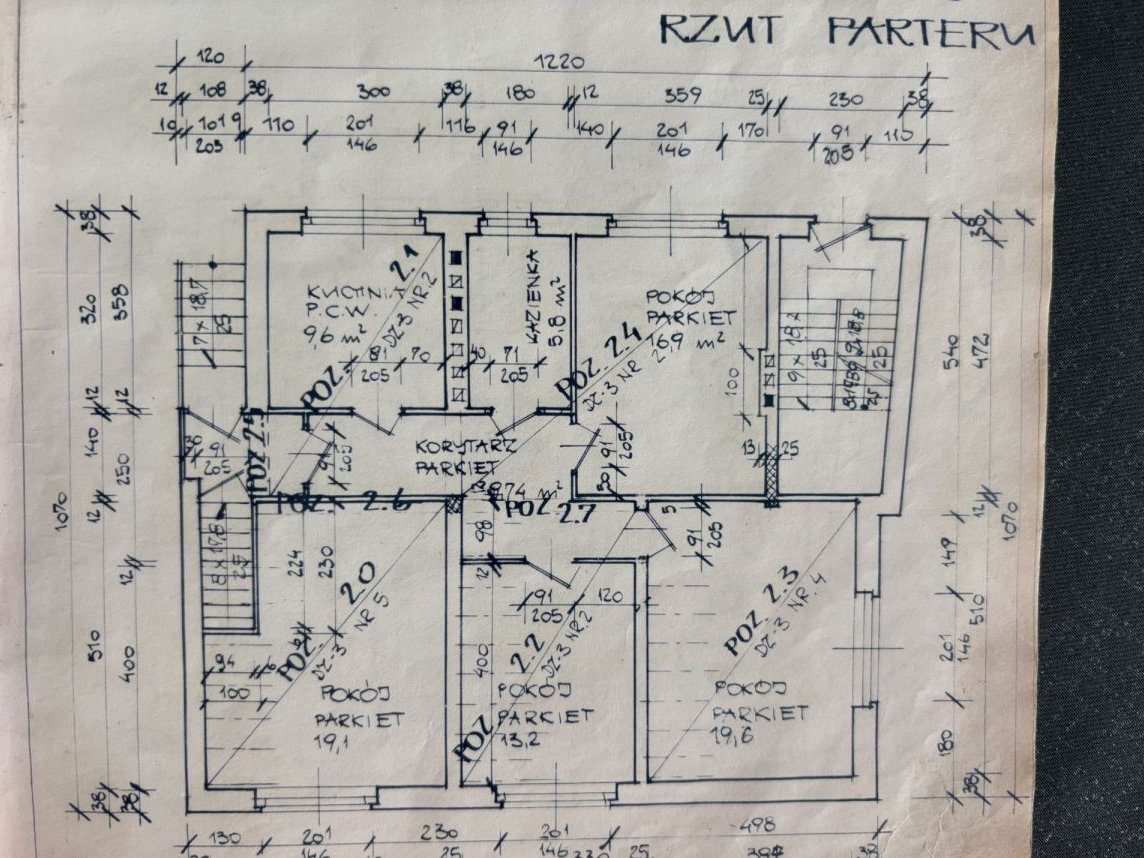 RZUT PARTERU
120 1220
12 108 38 300 38 180 12 359 25 230 38
10 101 9 110 201 116 91 140 201 170 91 110
205 146 146 146 205
38 320 358 12 12 140 250 12 12 510 400 38 38
1070
7 x 18,7
25
KUCHNIA
P.C.W.
9,6 m²
POZ. 2.1
DZ-3 NR.2
81 70
205
ŁAZIENKA
5,8 m²
40 71
205
POKÓJ
PARKIET
16,9 m²
POZ 2.4
DZ-3 NR
100
9 x 18,2
25
25
25
38 540 472 12 149 510 201 146 180 38
1070
91
205
POZ 2.5
91
205
KORYTARZ
PARKIET
74 m²
91
205
50
13 25
POZ. 2.6
POZ 2.7
98
12
5
91
205
25
224 230
POZ. 2.0
DZ-3 NR 5
94
100
POKÓJ
PARKIET
19,1
91 120
205
400
POZ 2.2
DZ-3 NR.2
POKÓJ
PARKIET
13,2
POZ 2.3
DZ-3 NR.4
POKÓJ
PARKIET
19,6
130 201 230 201 498
146 25 146 25